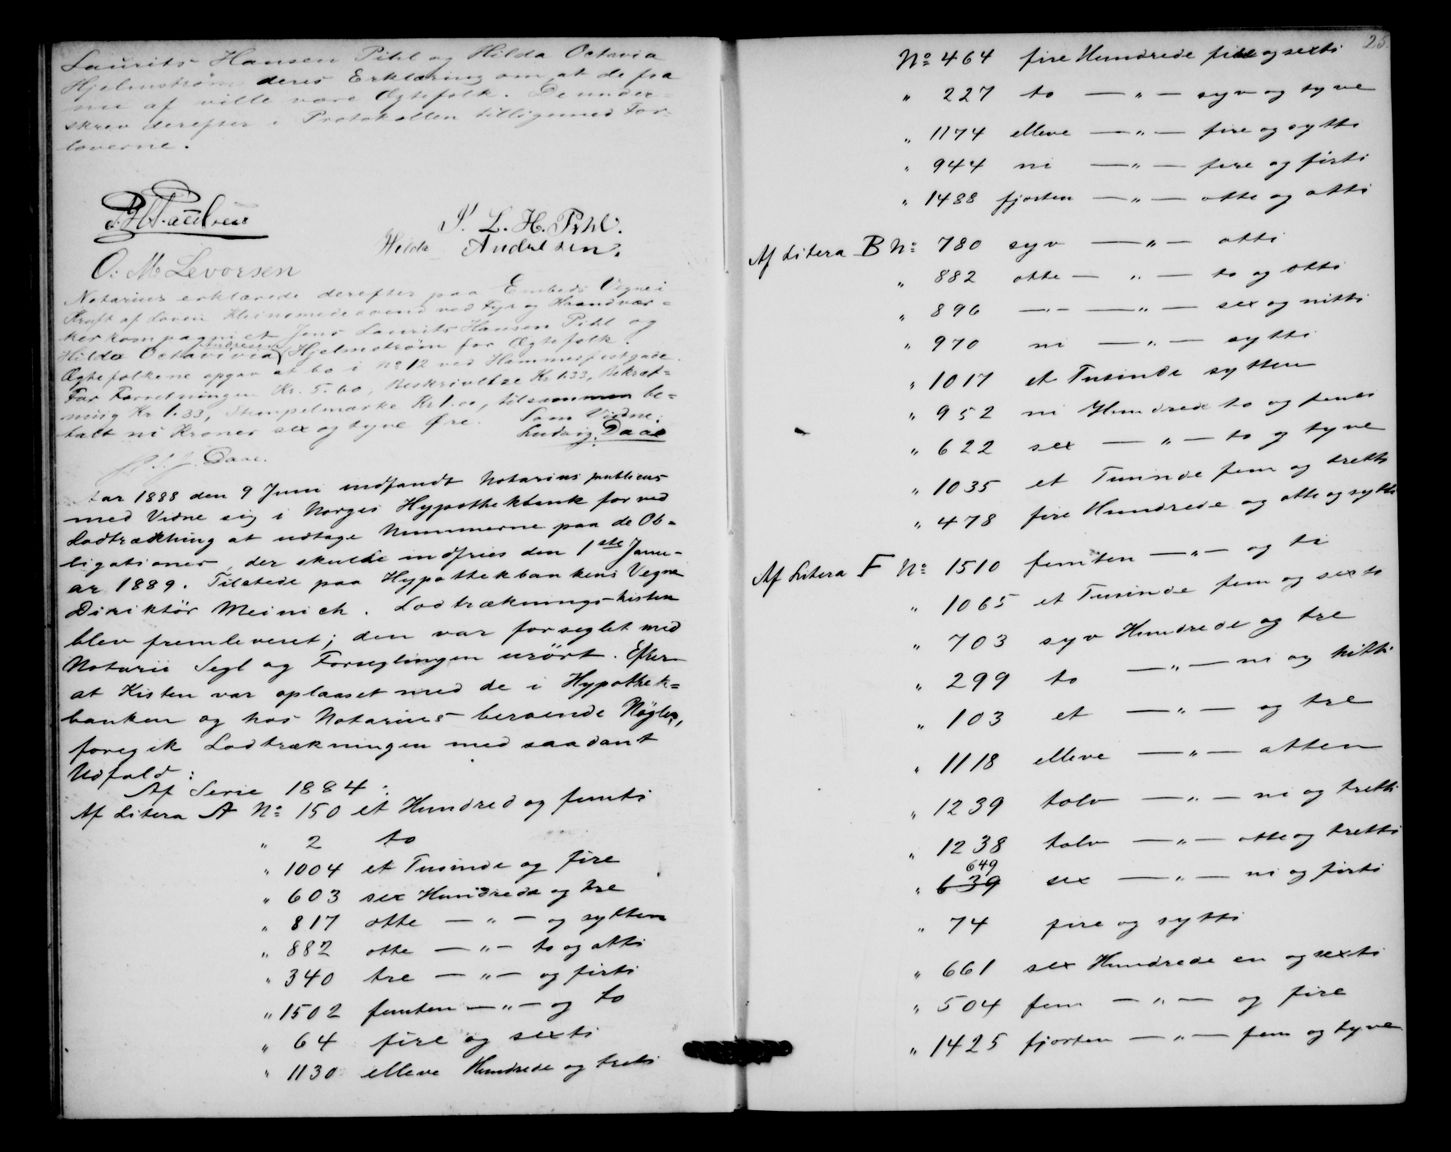 Laurits Hansen Pihl og Hilda Octavia
Hjelmstrøm deres Erklæring om at de fra
nu af ville være Ægtefolk. De under-
skrev derefter i Protokollen tilligemed For-
loverne.
J. L. H. Pihl.
Hilda Andresen.
O. M. Levorsen
Notarius erklærede derefter paa Embeds Vegne i
Kraft af Loven
Jens Laurits Hansen Pihl og
Hilda Octavia Andresen Hjelmstrøm for Ægtefolk.
Ægtefolkene opgav at bo i No 12 ved Hammerfestgade.
For Forretningen Kr. 5.60, Beskrivelse Kr 1.33, Bekræf-
telse Kr 1.33, Stempelmærke Kr 1.00, tilsammen be-
talt ni Kroner sex og tyve Øre.
Som Vidne:
Ludvig Daae
Daae.
Aar 1888 den 9 Juni indfandt Notarius publicus
med Vidne sig i Norges Hypothekbank for ved
Lodtrækning at udtage Nummerne paa de Ob-
ligationer, der skulle indfries den 1ste Janu-
ar 1889. Tilstede paa Hypothekbankens Vegne
Direktør Meinich. Lodtrækningskisten
blev fremleveret; den var forseglet med
Notarii Segl og Forseglingen urørt. Efter
at Kisten var oplaaset med de i Hypothek-
banken og hos Notarius beroende Nøgler,
foregik Lodtrækningen med saadant
Udfald:
Af Serie 1884:
Af Litera A No 150 et Hundred og femti
" 2 to
" 1004 et Tusinde og fire
" 603 sex Hundrede og tre
" 817 otte — " — og sytten
" 882 otte — " — to og otti
" 340 tre — " — og firti
" 1502 femten — " — og to
" 64 fire og sexti
" 1130 elleve Hundrede og treti
25.
No 464 fire Hundrede fire og sexti
" 227 to — " — syv og tyve
" 1174 elleve — " — fire og sytti
" 944 ni — " — fire og firti
" 1488 fjorten — " — otte og otti
Af Litera B No 780 syv — " — otti
" 882 otte — " — to og otti
" 896 — " — — " — sex og nitti
" 970 ni — " — sytti
" 1017 et Tusinde sytten
" 952 ni Hundrede to og femti
" 622 sex — " — to og tyve
" 1035 et Tusinde fem og tretti
" 478 fire Hundrede og otte og sytti
Af Litera F No 1510 femten — " — og ti
" 1065 et Tusinde fem og sexti
" 703 syv Hundrede og tre
" 299 to — " — ni og nitti
" 103 et — " — og tre
" 1118 elleve — " — atten
" 1239 tolv — " — ni og tretti
" 1238 tolv — " — otte og tretti
649
" 639 sex — " — ni og firti
" 74 fire og sytti
" 661 sex Hundrede en og sexti
" 504 fem — " — og fire
" 1425 fjorten — " — fem og tyve